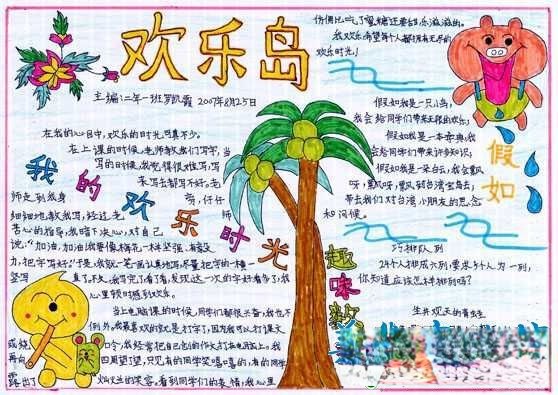 欢乐岛
主编:二年一班罗凯霞 2007年8月25日
我的欢乐时光
在我的心目中,欢乐的时光可真不少。
在上课的时候,老师教我们写字,当
写的时候,我觉得很难写,写
来写去都写不好。老
师走到我身
旁,仔仔
细细地教我写,经过老师
苦心的指导,我暗下决心,对自己
说:"加油,加油!我要像梅花一样坚强,有毅
力,把字写好!"于是,我就一笔一画认真地写,尽量把字的一横一
竖写直了。不久,我写完了,看了看,发现这一次的字好看多了,我
心里顿时感到欢乐。
当上电脑课的时候,同学们都很兴奋,我也不
例外。我最喜欢的就是打字了,因为我可以打课文
或绕口令,我经常把自己创的作文打在电脑上。我
再向四周望了望,只见有的同学笑嘻嘻的,有的同学
露出了灿烂的笑容。看到同学们的表情,我心里
仿佛比吃了蜜糖还要甜,乐滋滋的。
我欢乐,希望每个人都拥有无尽的
欢乐时光!
假如
假如我是一只小鸟,
我会给同学们带来无限的欢乐;
假如我是一本字典,我
会给同学们带来许多知识;
假如我是一朵白云,我会飘
呀,飘呀,飘,飘到台湾宝岛去,
带去我们对台湾小朋友的思念
和问候。
趣味数
巧排队列
24个人排成六列,要求5个人为一列,
你知道应该怎样排列吗?
生井观天的青蛙